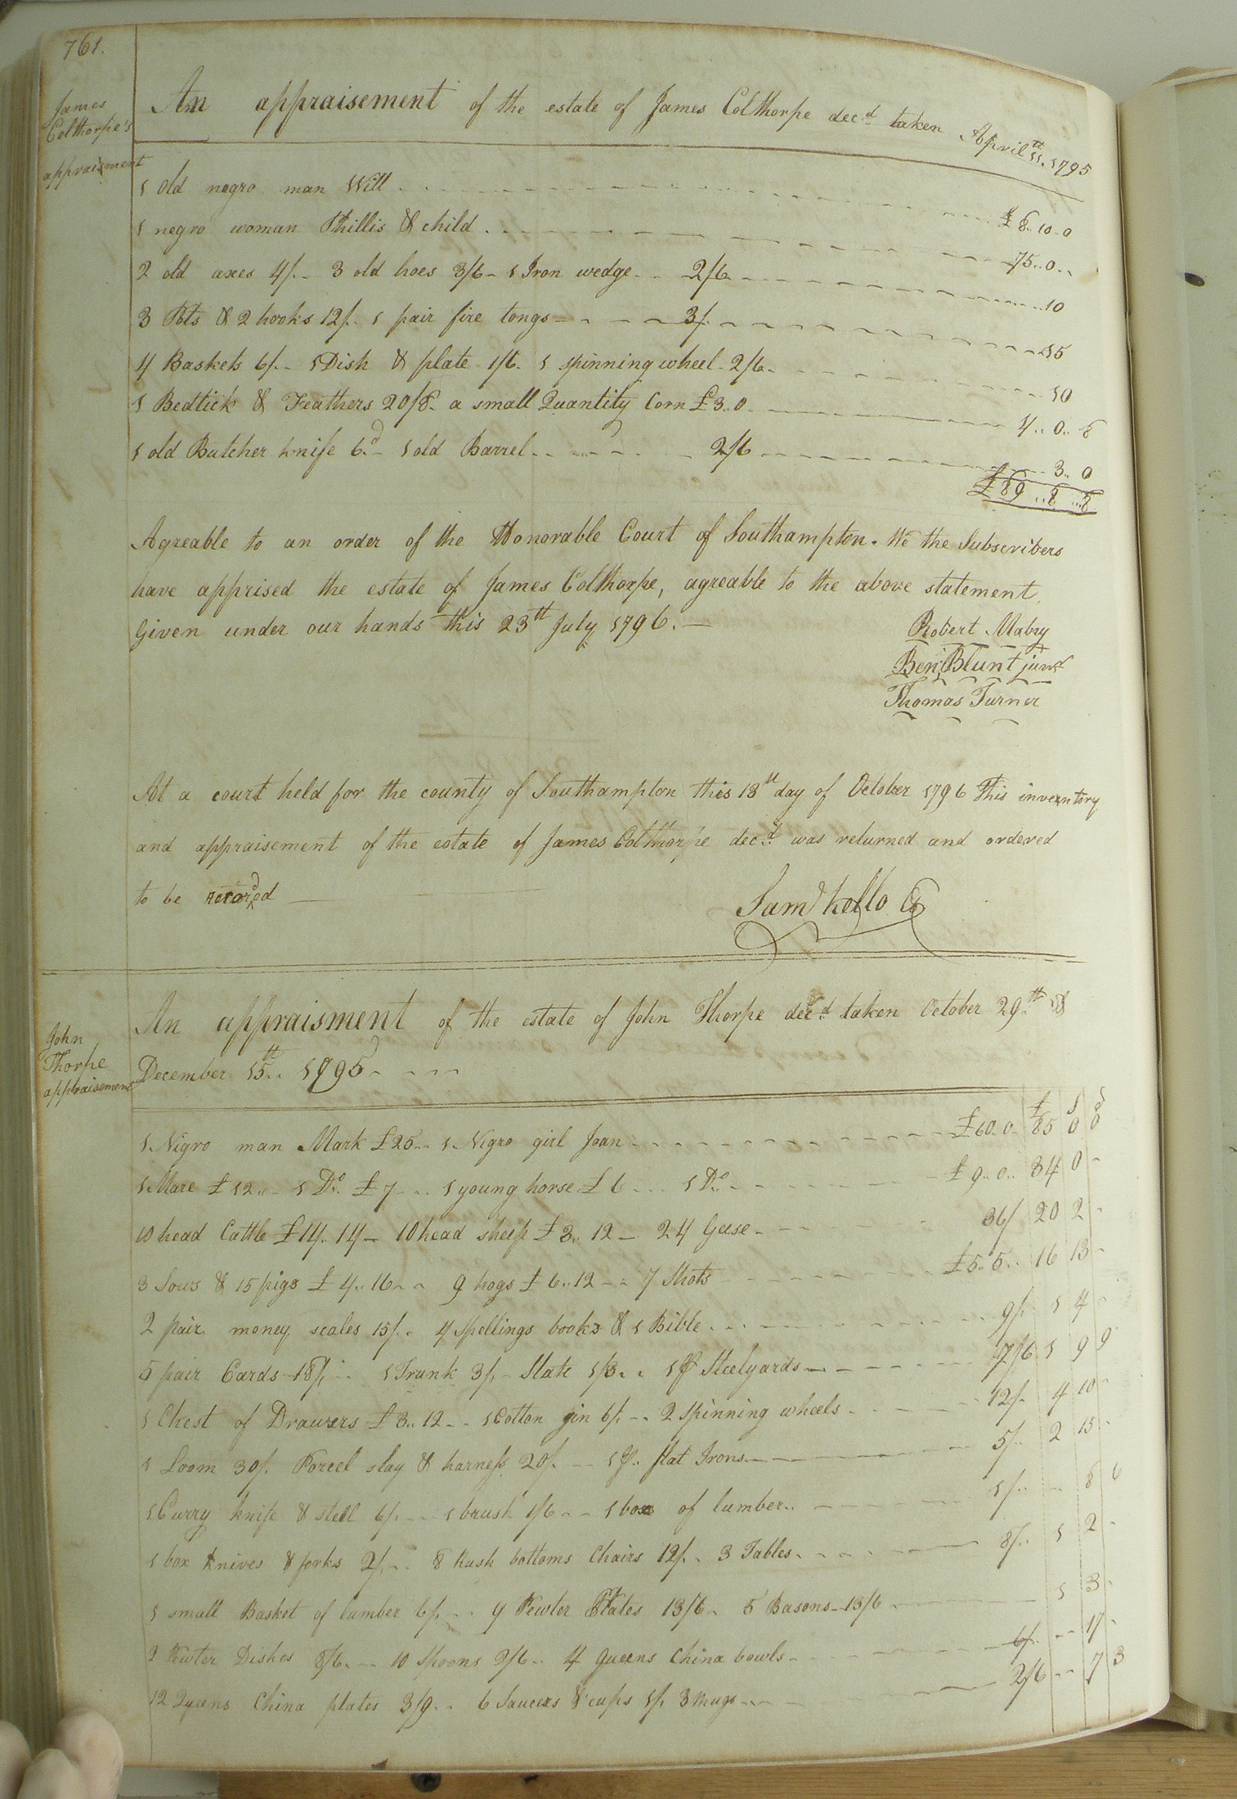 761.
James
Colthorpe's
appraisment
An appraisement of the estate of James Colthorpe decd taken April 11th 1795
1 old negro man Will £8..10..0
1 negro woman Phillis & child 75..0..
2 old axes 4/. 3 old hoes 3/6 1 Iron wedge 2/6 10
3 Pots & 2 hooks 12/. 1 pair fire tongs 3/. 15
4 Baskets 6/. 1 Dish & plate 1/6. 1 spinning wheel 2/6 10
1 Bedtick & Feathers 20/8. a small Quantity Corn £3..0 4..0..8
1 old Butcher knife 6d 1 old Barrel 2/6 3..0
£89..8..8
Agreable to an order of the Honorable Court of Southampton. We the Subscribers
have apprised the estate of James Colthorpe, agreable to the above statement.
Given under our hands this 23th July 1796.
Robert Mabry
Benj Blunt junr
Thomas Turner
At a court held for the county of Southampton this 13th day of October 1796 This inventory
and appraisement of the estate of James Colthorpe decd was returned and ordered
to be recorded
Saml Kello CC
John
Thorpe
appraisement
An appraisment of the estate of John Thorpe decd taken October 29th &
December 15th 1795
£ S d
1 Nigro man Mark £25 1 Nigro girl Joan £60..0 85 0 0
1 Mare £12.. 1 Do. £7 1 young horse £6 1 Do. £9..0.. 34 0
10 head Cattle £14..14 10 head sheep £3..12 24 Geese 36/ 20 2
3 Sows & 15 pigs £4..16 9 hogs £6..12 7 Shots £5..5.. 16 13
2 pair money scales 15/. 4 Spellings books & 1 Bible 9/. 1 4
5 pair Cards 18/. 1 Trunk 3/. Slate 1/3 1 pr Steelyards 7/6 1 9 9
1 Chest of Drawers £3..12 1 Cotton gin 6/. 2 Spinning wheels 12/. 4 10
1 Loom 30/. Porcel slay & harness 20/. 1 pr. flat Irons 5/. 2 15
1 Curry knife & steel 6/. 1 brush 1/6 1 box of lumber 1/. 8 6
1 box knives & forks 2/. 8 Rush bottoms Chairs 12/. 3 Tables 8/. 1 2
1 small Basket of lumber 6/. 4 Pewter Plates 13/6. 5 Basons 13/6 1 3
2 Pewter Dishes 8/6. 10 Spoons 2/6. 4 Queens China bowls 6/. 17
12 Queens China plates 3/9. 6 Saucers & cups 1/. 3 mugs 2/6 7 3